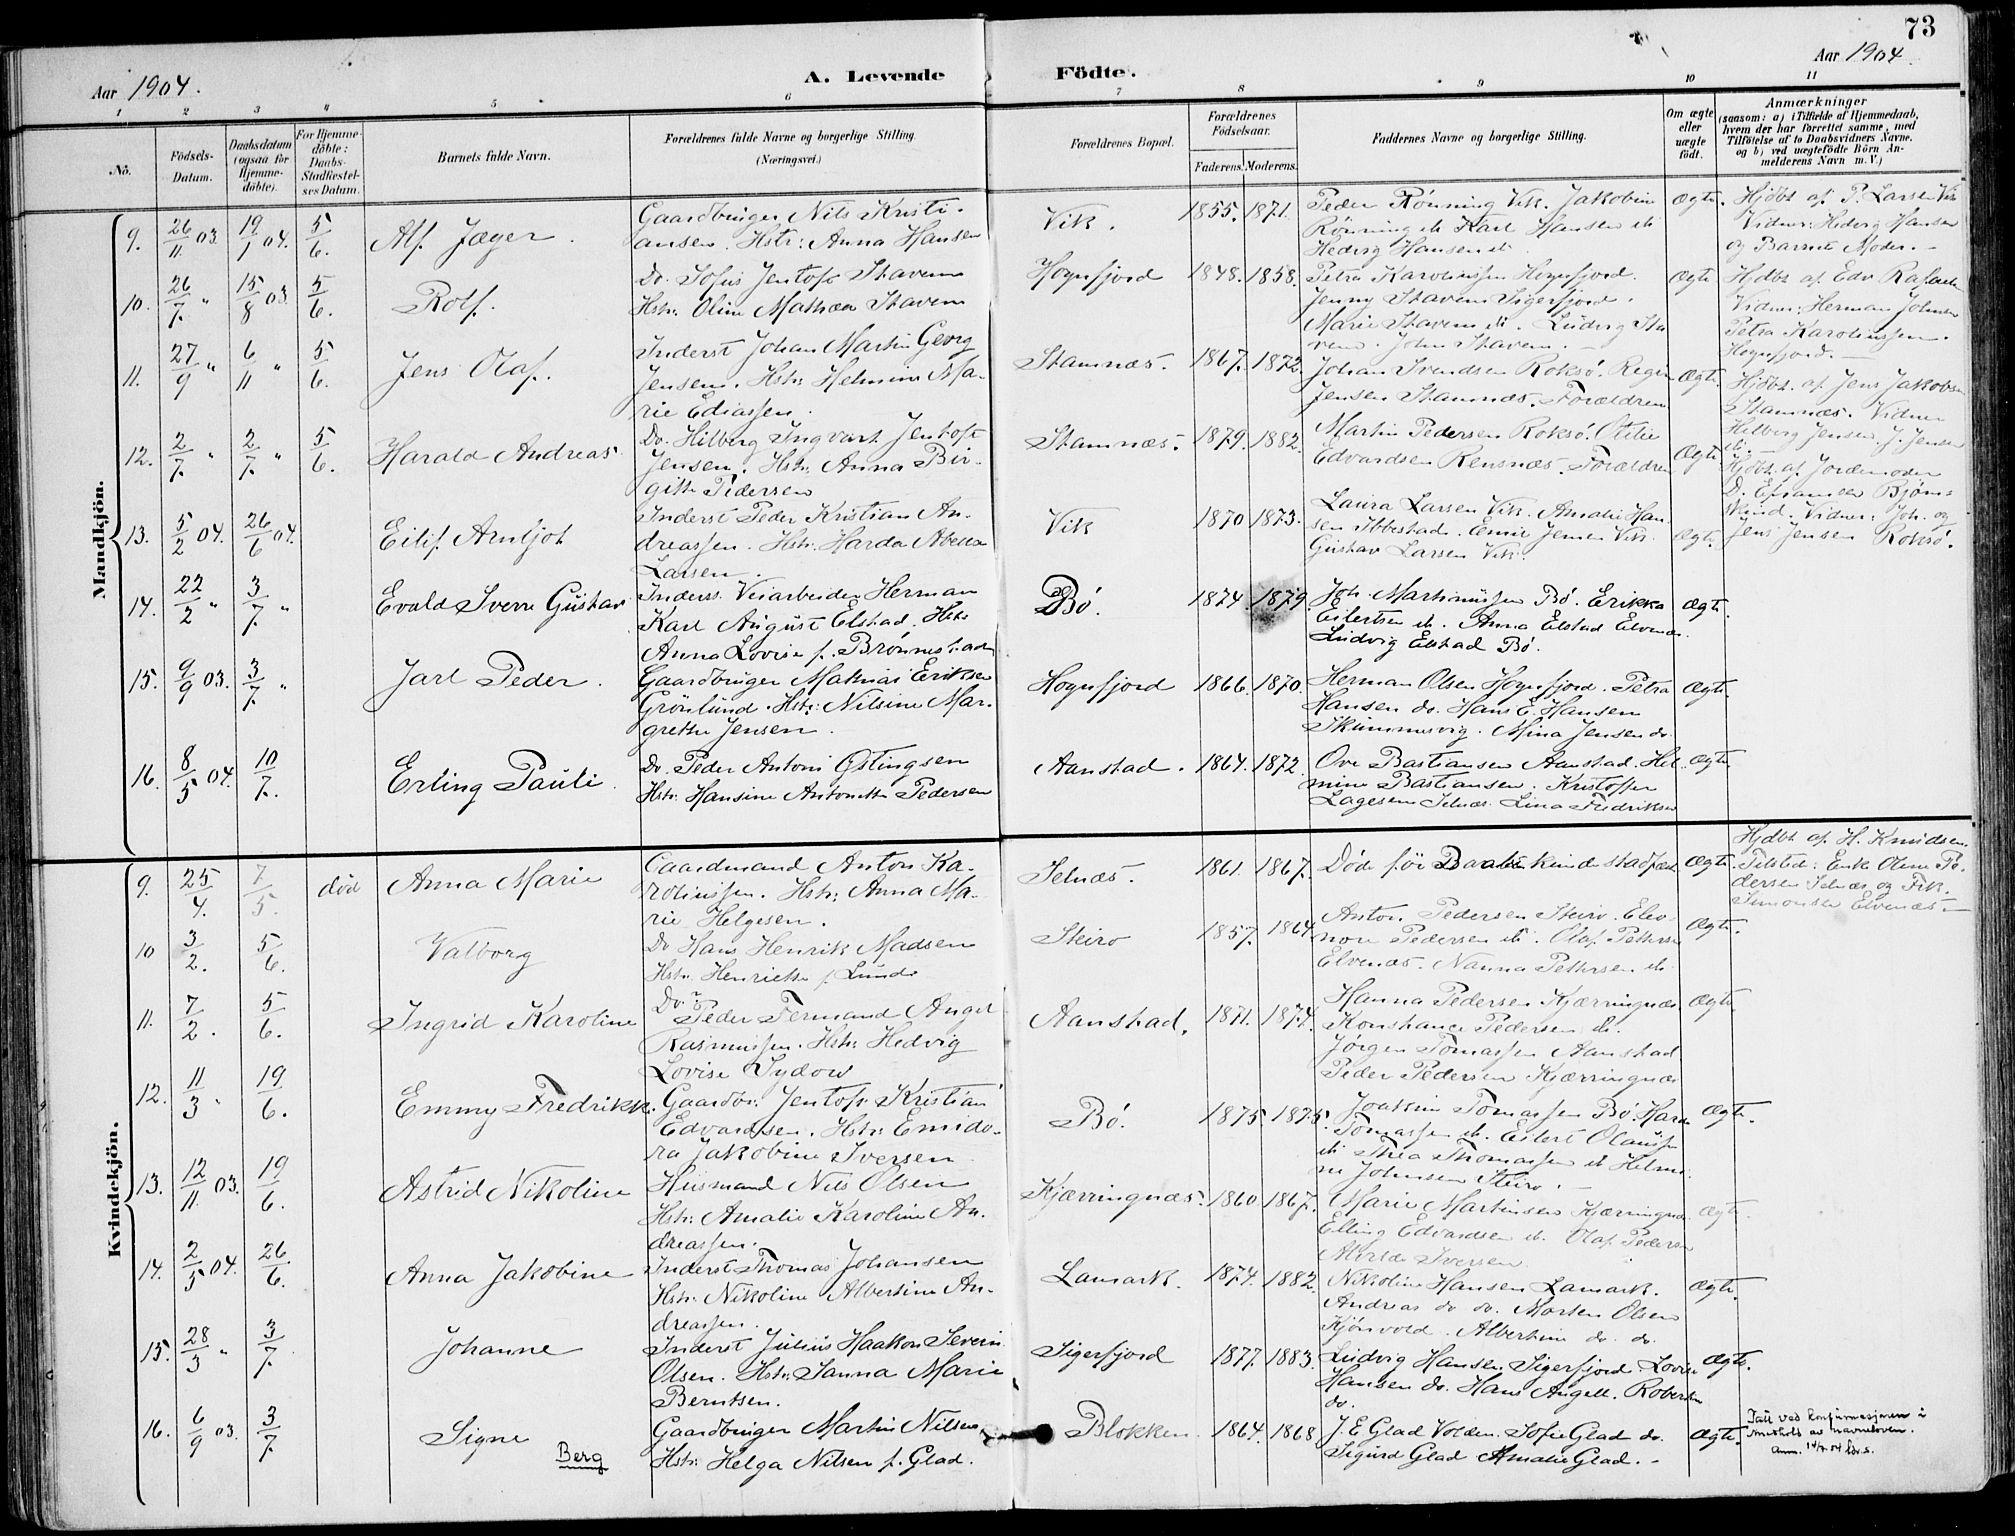 73
Aar 1904.
A. Levende Födte.
Aar 1904.
1 2 3 4 5 6 7 8 9 10 11
No.
Födsels-Datum.
Daabsdatum (ogsaa for Hjemmedöbte).
For Hjemmedöbte: Daabs-Stadfæstelses Datum.
Barnets fulde Navn.
Forældrenes fulde Navne og borgerlige Stilling.
(Næringsvei.)
Forældrenes Bopæl.
Forældrenes Födselsaar.
Faderens. Moderens.
Faddernes Navne og borgerlige Stilling.
Om ægte eller uægte født.
Anmærkninger
(saasom: a) i Tilfælde af Hjemmedaab, hvem der har forrettet samme, med Tilföielse af to Daabsvidners Navne. og b) ved uægtefödte Börn Anmelderens Navn m. V.)
Mandkjön.
9. 26/11 03. 19/1 04. 5/6. Alf Jæger.
Gaardbruger Nils Kristi-
ansen. Hstr: Anna Hansen
Vik. 1855. 1871.
Peder Rönning Vik. Jakobine
Rönning ib. Karl Hansen ib
Hedvig Hansen ib
Ægte.
Hjdbt af P. Larsen Vik
Vidner: Hedvig Hansen
og Barnets Moder. -
10. 26/7. " 15/8 03. 5/6. Rolf.
Do. Sofus Jentoft Stavem
Hstr: Oline Mathea Stavem
Hognfjord 1848. 1858.
Petra Karolinssen Hognfjord.
Jenny Stavem Sigerfjord.
Marie Stavem ib. Ludvig Sta
vem. John Stavem. -
Ægte
Hjdbt af Edv Rafaelsen
Vidner: Herman Johnsen
Petra Karolinssen.
Hognfjord. -
11. 27/9 " 6/11 " 5/6. Jens Olaf.
Inderst Johan Martin Georg
Jensen. Hstr. Helmine Ma-
rie Ediassen.
Stamnæs. 1867. 1872.
Johan Svendsen Roksö. Regine
Jensen Stamnæs. Forældrene
Ægte.
Hjdbt. af Jens Jakobsen
Stamnæs. Vidner
Hilberg Jensen. J. Jensen
ib. -
12. 2/7. " 2/7. " 5/6. Harald Andreas
Do. Hilberg Ingvart Jentoft
Jensen. Hstr: Anna Bir-
gitte Pedersen
Stamnæs. 1879. 1882.
Martin Pedersen Roksö. Otilie
Edvardsen Rensnæs. Forældrene
Ægte.
Hjdbt. af Jordemoder
D. Efraimsen Bjørn-
skind. Vidner: Joh. og
Jens Jensen Roksö.
13. 5/2 04. 26/6 04. Eilif Arntfjot
Inderst Peder Kristian An-
dreassen. Hstr: Harda Abella
Larsen.
Vik 1870 1873.
Laura Larsen Vik. Amalie Han-
sen Ibbestad. Emil Jensen Vik.
Gustav Larsen Vik.
Ægte.
14. 22/2 " 3/7. " Evald Sverre Gustav
Inderst. Veiarbeider Herman
Karl August Elstad. Hstr
Anna Lovise f. Brönnestad
Bö. 1874. 1879
Joh. Martinussen Bö. Erikka
Eilertsen ib. Anna Elstad Elvenæs.
Ludvig Elstad Bö.
Ægte.
15. 9/9 03. 3/7. " Jarl Peder.
Gaardbruger Mathias Eriksen
Grönlund. Hstr: Nilsine Mar-
grethe Jensen.
Hognfjord 1866. 1870.
Herman Olsen Hognfjord. Petra
Hansen do. Hans E. Hansen
Skummesvig. Mina Jensen do.
Ægte.
16. 8/5 04. 10/7. Erling Pauli.
Do. Peder Antoni Østingsen
Hstr: Hansine Antonette Pedersen
Aanstad. 1864. 1872.
Ove Bastiansen Aanstad. Hel-
mine Bastiansen. Kristoffer
Lagesen Selnæs. Lina Fredriksen
Ægte.
Kvindekjön.
9. 25/4. 7/5. död Anna Marie
Gaardmand Anton Ka-
rolinssen. Hstr: Anna Ma-
rie Helgesen.
Selnæs. 1861. 1867.
Död för Daaben kunde stadfæstes
Ægte.
Hjdbt af H. Knudsen.
Tilsted: Enke Oline Pe-
dersen Selnæs og Frk.
Simonsen Elvenæs. -
10 3/2. 5/6. Valborg
Do Hans Henrik Madsen
Hstr. Henriette f. Lunde
Steiro 1857. 1864
Anton Pedersen Steiro. Eleo-
nore Pedersen ib. Olaf Pettersen
Elvenæs. Nanna Pettersen ib.
Ægte.
11. 7/2. 5/6. Ingrid Karoline
Do: Peder Fermand Angel
Rasmussen. Hstr: Hedvig
Lovise Sydow
Aanstad. 1871. 1874.
Hanna Pedersen Kjærringnæs
Konstance Pedersen ib.
Jörgen Tomassen Aanstad
Peder Pedersen Kjærringnæs
Ægte
12. 11/3 " 19/6. Emmy Fredrikke.
Gaardbr: Jentoft Kristian
Edvardsen. Hstr: Emido-
ra Jakobine Iversen
Bö. 1875 1875.
Joakim Tomassen Bö. Hara
Tomassen ib. Eilert Olaussen
ib Thea Thomassen ib Helmi-
ne Johnsen Steiro. -
Ægte.
13. 12/11 03. 19/6. Astrid Nikoline
Husmand Nils Olsen
Hstr: Amalie Karoline An-
dreassen.
Kjærringnæs. 1860 1867.
Marie Martinsen Kjærringnæs.
Elling Edvardsen ib. Olaf Pedersen
Alvilde Iversen
Ægte.
14. 2/5 04. 26/6. Anna Jakobine
Inderst Thomas Johansen
Hstr: Nikoline Albertine An-
dreassen.
Lamark. 1874. 1882.
Nikoline Hansen Lamark.
Andreas do do. Morten Olsen
Kjönvold. Albertine do. do.
Ægte.
15. 28/3 " 3/7 Johanne
Inderst Julius Haakon Severin
Olsen. Hstr: Sanna Marie
Berntsen.
Sigerfjord 1877. 1883.
Ludvig Hansen Sigerfjord. Lovise
Hansen do. Hans Angell. Robertsen
do.
Ægte.
16. 6/9 03. 3/7. Signe
Berg
Gaardbruger Martin Nilsen
Hstr: Helga Nilsen f. Glad.
Blokken 1864. 1868
J. E Glad Volden. Sofie Glad do.
Sigurd Glad Amalie Glad. -
Ægte.
Tatt ved konfirmasjonen i
henhold av navneloven.
Anm. 14/7.54 ldv.s.